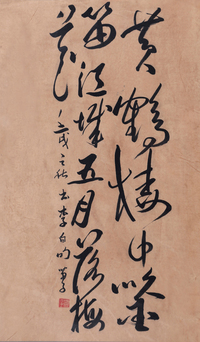 黄鹤楼中吹玉
笛江城五月落梅
花
戌之秋书李白句